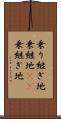 乗り継ぎ地
乗継地
乗継ぎ地